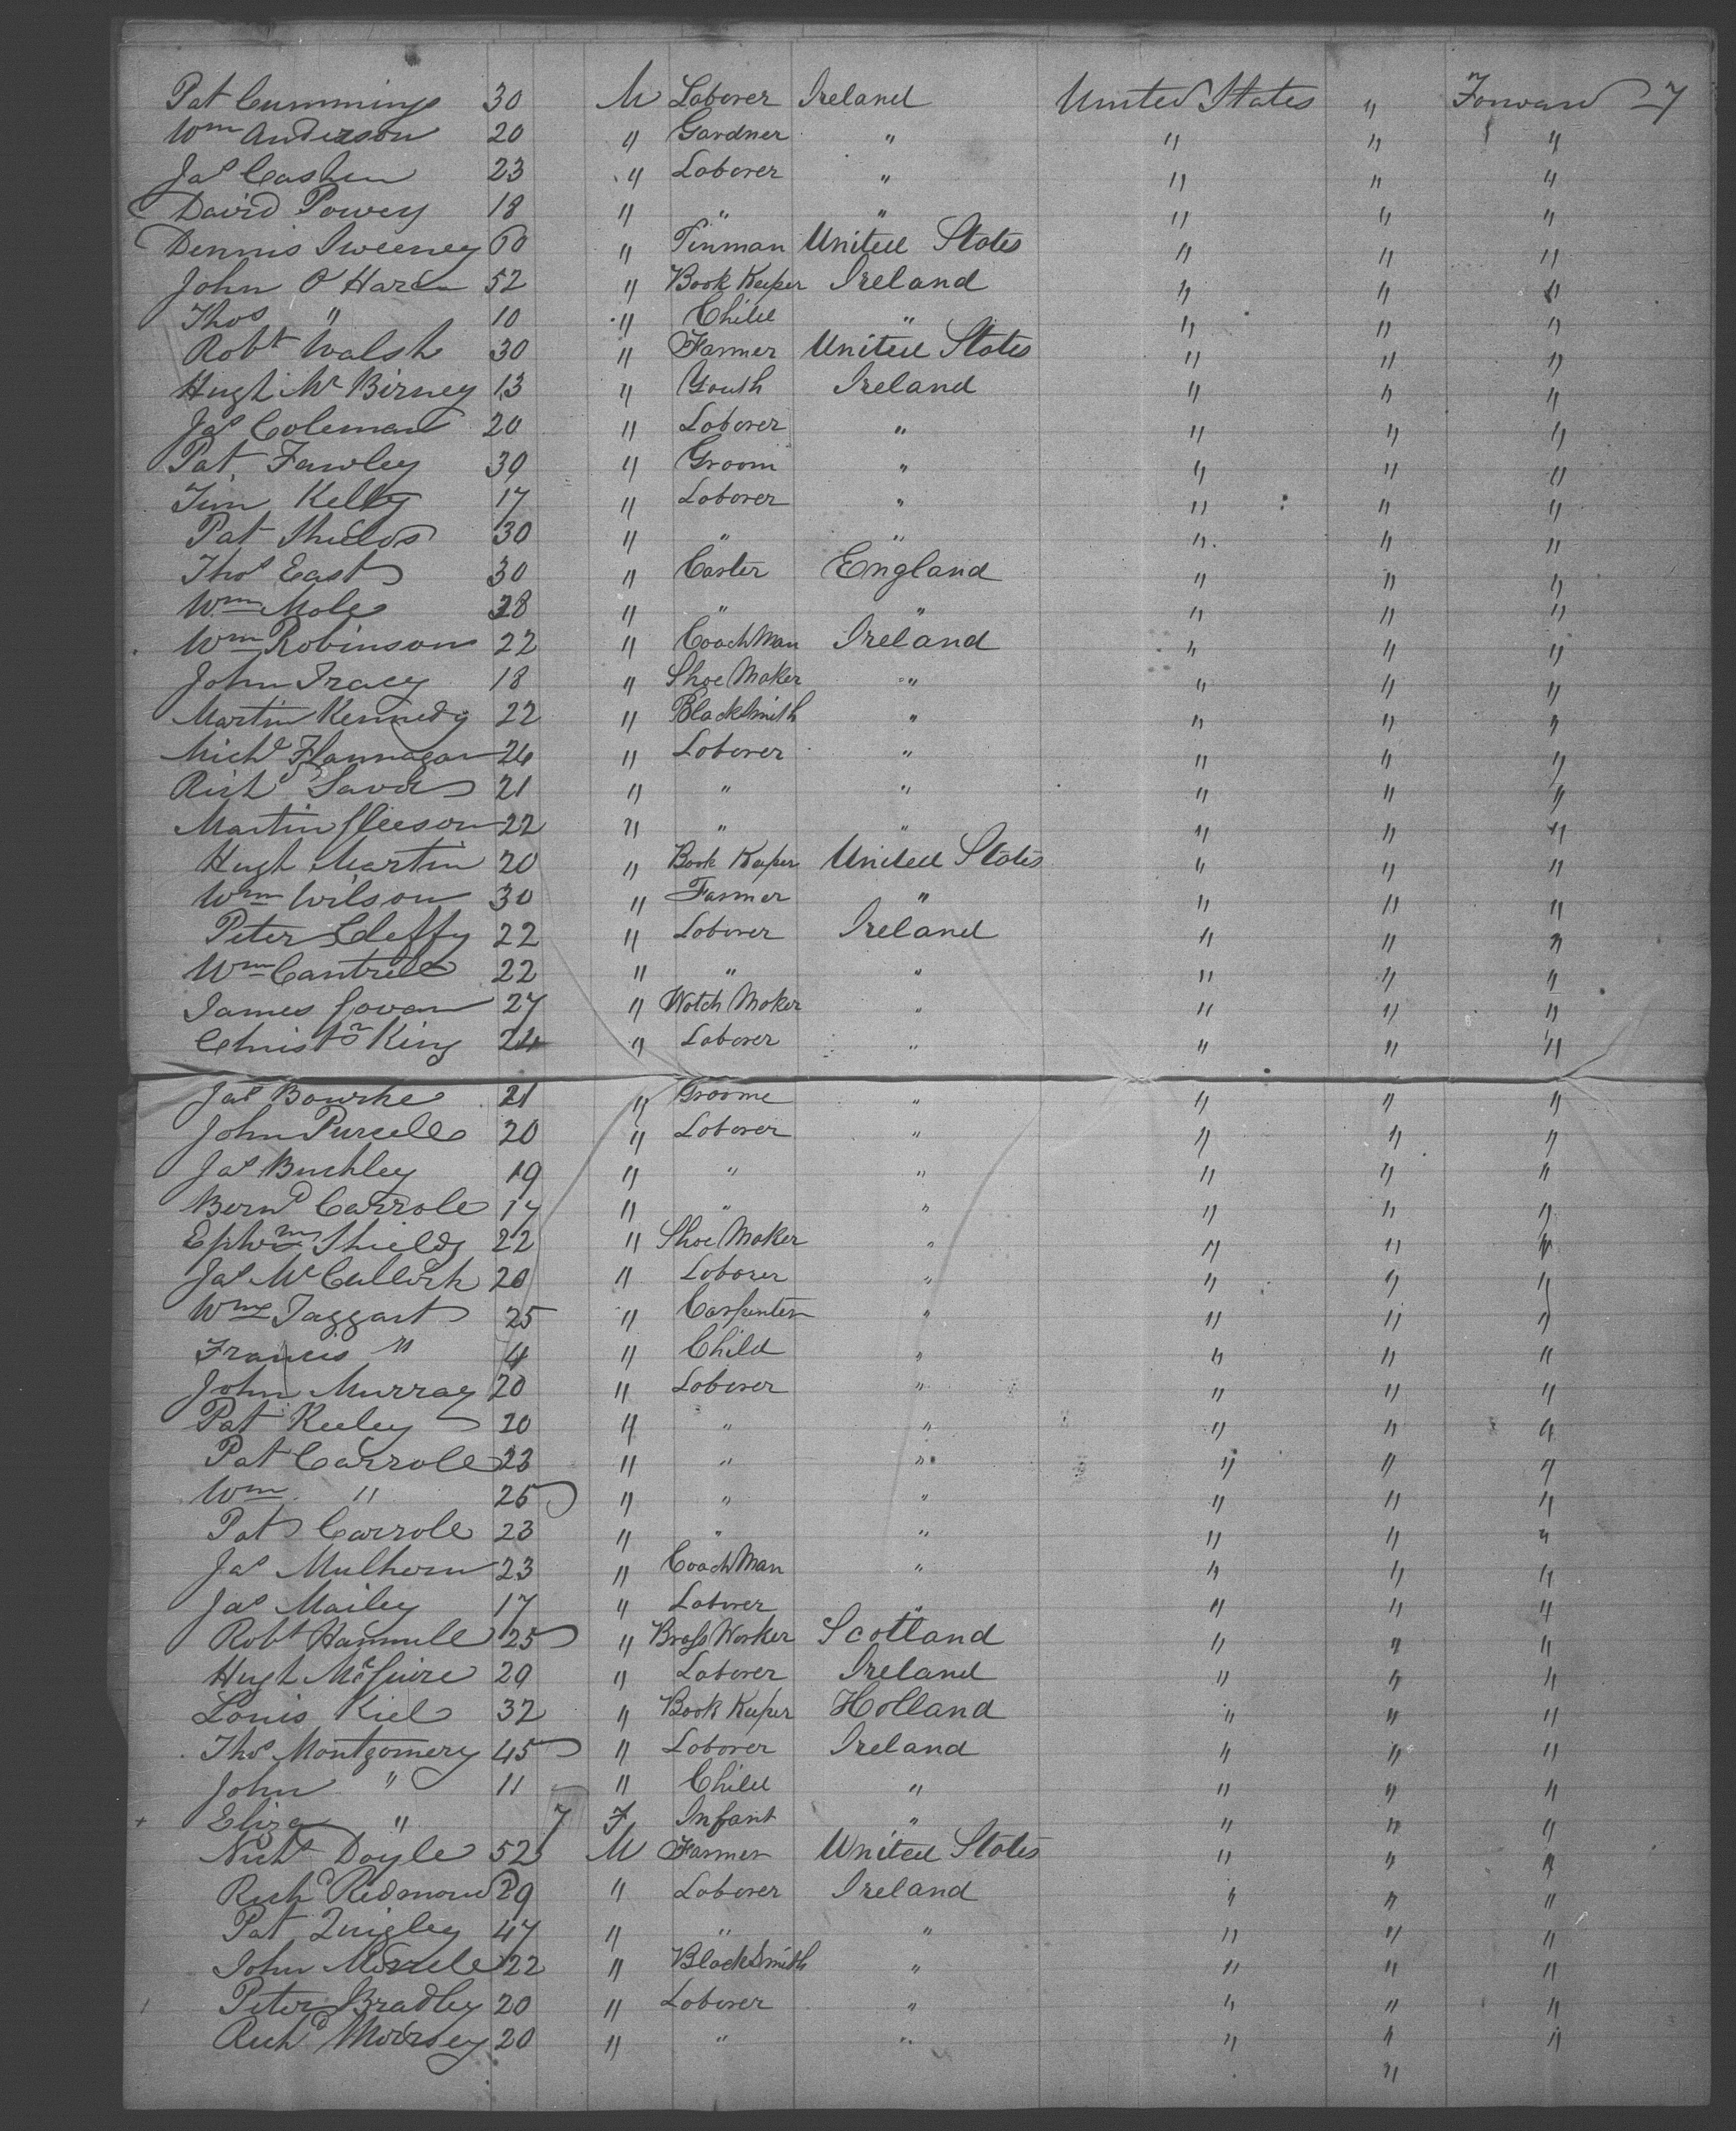 Pat Cummings 30 M Laborer Ireland United States " Forward 7
Wm Anderson 20 " Gardner " " " "
Jas Cashen 23 " Laborer " " " "
David Powey 18 " " " " " "
Dennis Sweeney 60 " Tinman United States " " "
John O'Hara 52 " Book Keeper Ireland " " "
Thos " 10 " Child " " " "
Robt Walsh 30 " Farmer United States " " "
Hugh Mc Birney 13 " Youth Ireland " " "
Jas Coleman 20 " Laborer " " " "
Pat Fawley 39 " Groom " " " "
Jim Kelly 17 " Laborer " " " "
Pat Shields 30 " " " " " "
Thos East 30 " Carter England " " "
Wm Mole 28 " " " " " "
Wm Robinson 22 " Coach Man Ireland " " "
John Tracey 18 " Shoe Maker " " " "
Martin Kennedy 22 " Blacksmith " " " "
Michl Flannagan 26 " Laborer " " " "
Richd 21 " " " " " "
Martin Gleeson 22 " " " " " "
Hugh Martin 20 " Book Keeper United States " " "
Wm Wilson 30 " Farmer " " " "
Peter 22 " Laborer Ireland " " "
Wm Cantrell 22 " " " " " "
James Govan 27 " Watch Maker " " " "
Christr King 24 " Laborer " " " "
Jas Bourke 21 " Groome " " " "
John Purcell 20 " Laborer " " " "
Jas Buckley 19 " " " " " "
Bernd Carroll 17 " " " " " "
Ephrm Shields 22 " Shoe Maker " " " "
Jas McCullock 20 " Laborer " " " "
Wm Taggart 25 " Carpenter " " " "
Francis " 4 " Child " " " "
John Murray 20 " Laborer " " " "
Pat Keeley 20 " " " " " "
Pat Carroll 23 " " " " " "
Wm " 25 " " " " " "
Pat Carroll 23 " " " " " "
Jas Mulhern 23 " Coach Man " " " "
Jas Mailey 17 " Laborer " " " "
Robt Hammill 25 " Brass Worker Scotland " " "
Hugh McGuire 29 " Laborer Ireland " " "
Louis Kiel 32 " Book Keeper Holland " " "
Thos Montgomery 45 " Laborer Ireland " " "
John " 11 " Child " " " "
Eliza " 7 F Infant " " " "
Nichs Doyle 52 M Farmer United States " " "
Richd Redmond 29 " Laborer Ireland " " "
Pat Quigley 47 " " " " " "
John 22 " Blacksmith " " " "
Peter Bradley 20 " Laborer " " " "
Richd 20 " " " " " "
"